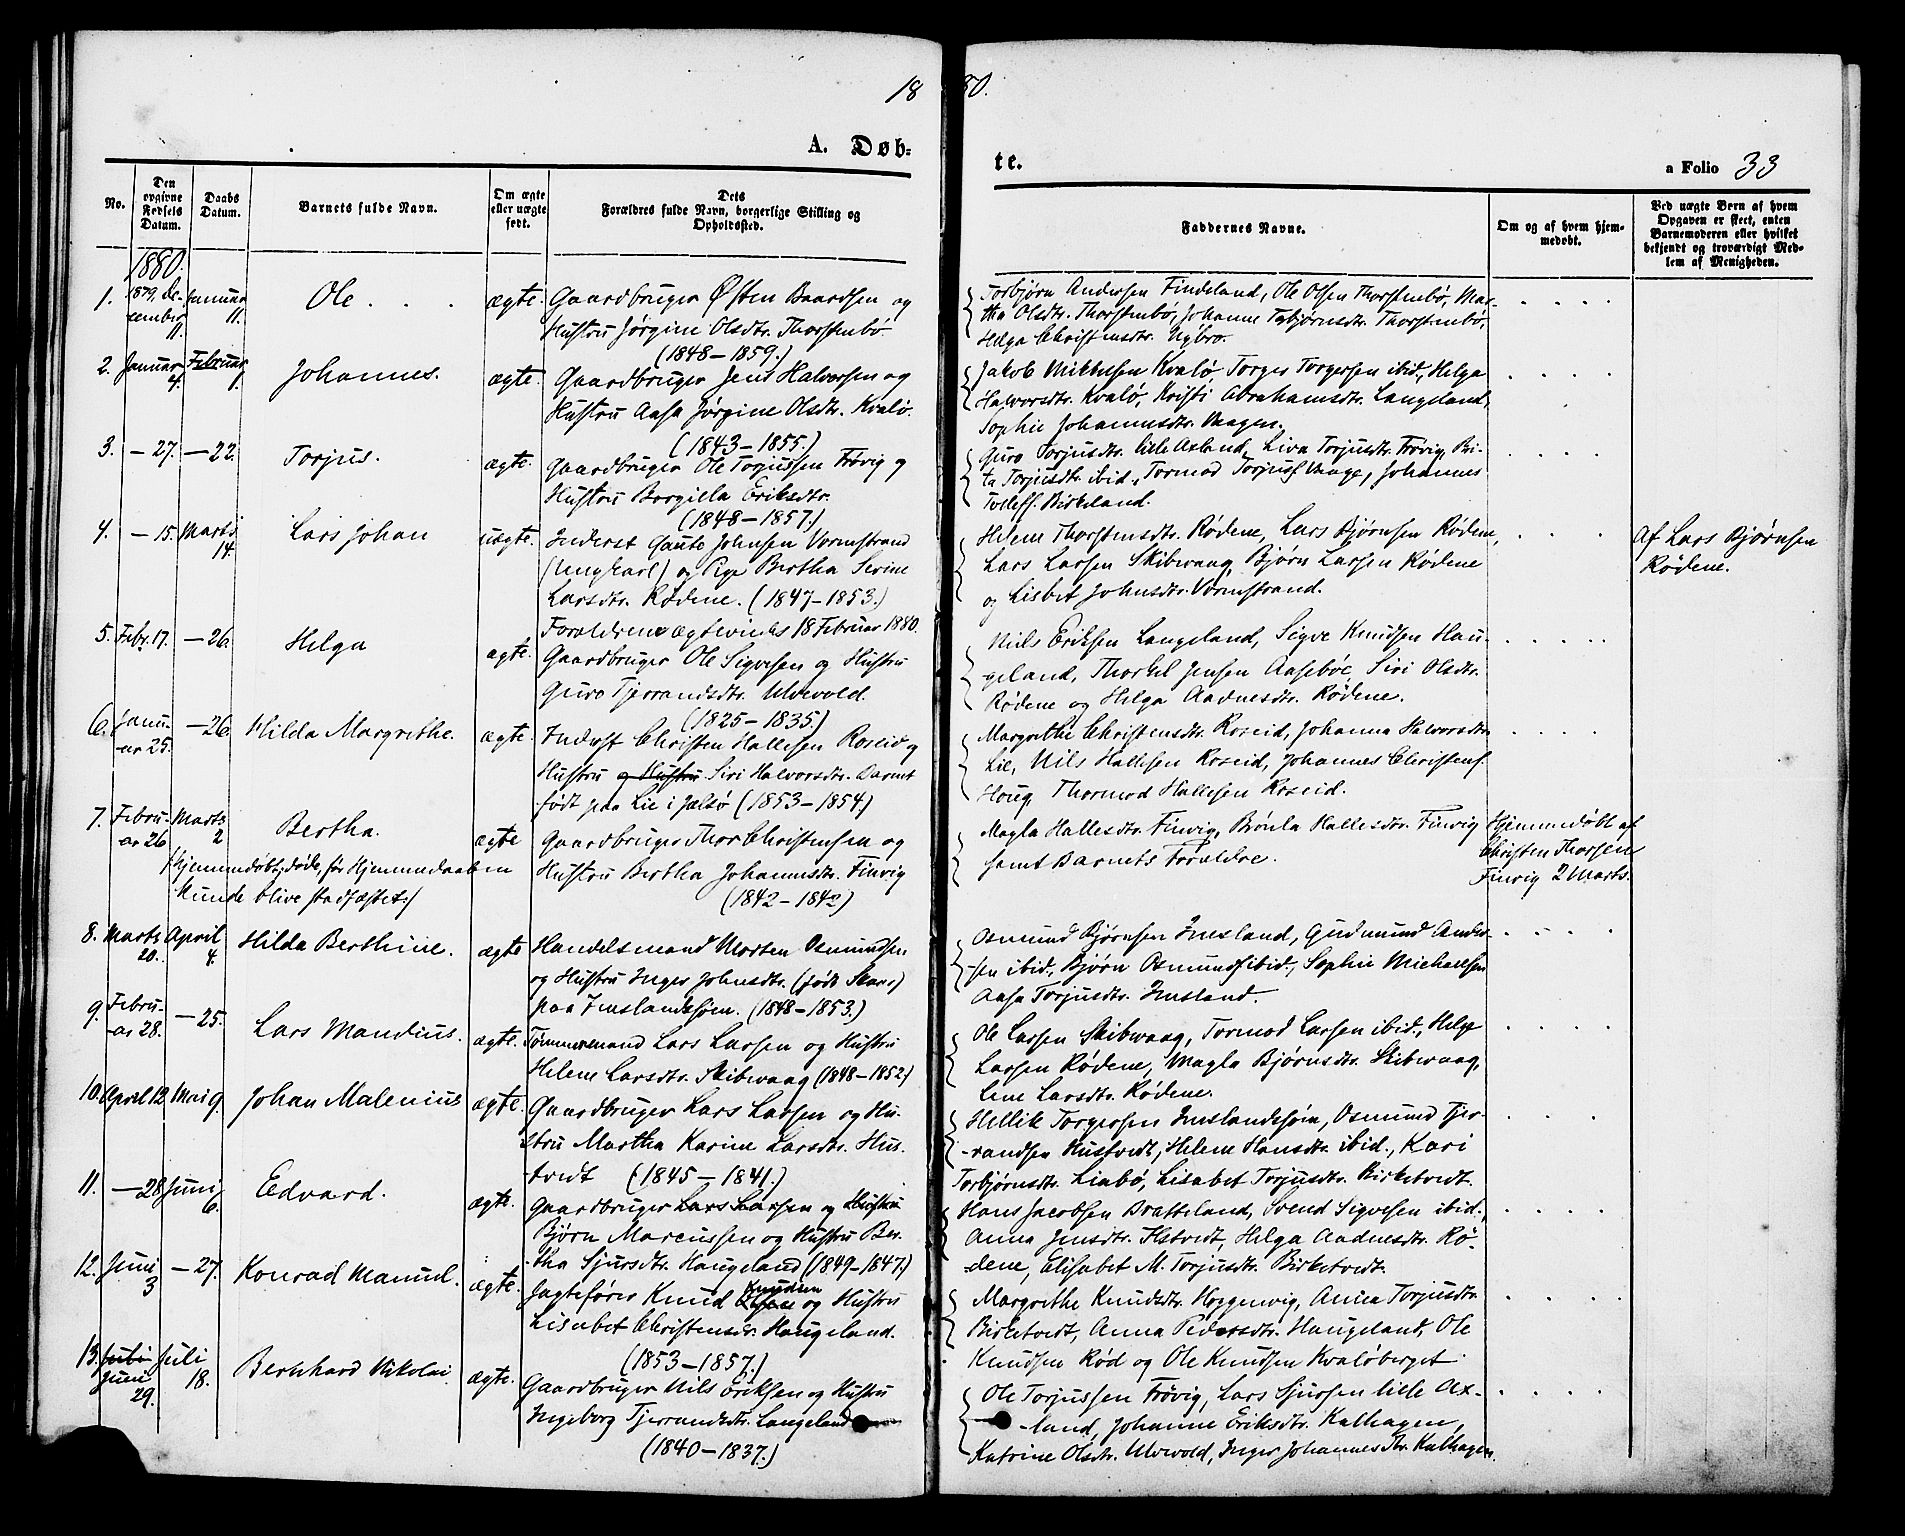 1880.
A. Døbte.
a Folio 33
No.
Den opgivne Fødsels Datum.
Daabs Datum.
Barnets fulde Navn.
Om ægte eller uægte født.
Dets Forældres fulde Navn, borgerlige Stilling og Opholdssted.
Faddernes Navne.
Om og af hvem hjemmedøbt.
Ved uægte Børn af hvem Opgaven er skeet, enten Barnemoderen eller hvilket bekjendt og troværdigt Medlem af Menigheden.
1880.
1. 1879, December 11. Januar 11. Ole ægte.
Gaardbruger Østen Baardsen og
Hustru Jørgine Olsdtr. Thorstenbö
(1848-1859.)
Torbjørn Andersen Findeland, Ole Olsen Thorstenbö, Mar-
tha Olsdtr. Thorstenbö, Johanne Torbjørnsdtr. Thorstenbö,
Helga Christensdtr. Nybro.
2. Januar 4. Februar 1. Johannes. ægte.
Gaardbruger Jens Halvorsen og
Hustru Aasa Jørgine Olsdtr. Kvalö.
(1843-1855.)
Jakob Mikkelsen Kvalö, Torger Torgersen ibid., Helga
Halvorsdtr. Kvalö, Kristi Abrahamsdtr. Langeland,
Sophie Johannesdtr. Vaagen.
3. - 27. - 22. Torjus. ægte.
Gaardbruger Ole Torjussen Frövig og
Hustru Borgilla Eriksdtr.
(1848-1857.)
Guro Torjusdtr. lille Axland, Liva Torjusdtr. Frövig, Bri-
ta Torjusdtr. ibid., Tormod Torjuss. Vaage, Johannes
Tolleffs. Birkeland.
4. - 15. Marts 14. Lars Johan uægte.
Inderst Gaute Johnsen Vormstrand
(Ungkarl) og Pige Bertha Serine
Larsdtr. Rödene. (1847-1853.)
Forældrene ægteviedes 18 Februar 1880.
Helene Thorstensdtr. Rödene, Lars Bjørnsen Rödene,
Lars Larsen Skibevaag, Bjørn Larsen Rödene
og Lisbet Johnsdtr. Vormstrand.
Af Lars Bjørnsen
Rödene.
5. Febr. 17. - 26. Helga ægte.
Gaardbruger Ole Sigvesen og Hustru
Guro Tjerrandsdtr. Ulvevold.
(1825-1835)
Niels Eriksen Langeland, Sigve Knudsen Hau-
geland, Thorkel Jensen Aaseböe, Siri Olsdtr.
Rödene og Helga Aadnesdtr. Rödene.
6. Janu-
ar 25. - 26. Hilda Margrethe. ægte.
Inderst Christen Hallesen Roseid og
Hustru og Hustru Siri Halvorsdtr. Barnet
født paa Lie i Jælsö (1853-1854)
Margrethe Christensdtr. Roseid, Johanna Halvorsdtr.
Lie, Nils Hallesen Roseid, Johannes Christens.
Houg, Thormod Hallesen Roseid.
7. Febru-
ar 26 Marts 2 Bertha. ægte
(Hjemmedøbt, døde, før Hjemmedaaben
kunde blive stadfæstet.)
Gaardbruger Thor Christensen og
Hustru Bertha Johannesdtr. Finvig
(1842-1842)
Magla Hallesdtr. Finvig, Brönla Hallesdtr. Finvig
samt Barnets Forældre.
Hjemmedøbt af
Christen Thorsen
Finvig 2 Marts.
8. Marts 20. April 4. Hilda Berthine. ægte
Handelsmand Morten Osmundsen
og Hustru Inger Johnsdtr. (født Skare)
paa Imslandssjøen. (1848-1853.)
Osmund Bjørnsen Imsland, Gudmund Ander-
sen ibid., Bjørn Osmunds. ibid., Sophie Michaelsen
Aasa Torjusdtr. Imsland.
9. Febru-
ar 28. - 25. Lars Mandius. ægte.
Tømmermand Lars Larsen og Hustru
Helene Larsdtr. Skibevaag (1848-1852)
Ole Larsen Skibevaag, Tormod Larsen ibid., Helge
Larsen Rödene, Magla Bjørnsdtr. Skibevaag,
Lene Larsdtr. Rödene.
10. April 12. Mai 9. Johan Malenius ægte.
Gaardbruger Lars Larsen og Hu-
stru Martha Karine Larsdtr. Hus-
tvedt (1845-1841.)
Hellik Torgersen Imslandssjøn, Osmund Tjer-
randsen Hustvedt, Helene Hansdtr. ibid., Kari
Torbjørnsdtr. Liabö, Lisabet Torjusdtr. Birketvedt.
11. - 28. Juni 6. Edvard. ægte.
Gaardbruger Lars Larsen og Hustru
Bjørn Marcussen og Hustru Ber-
tha Sjursdtr. Haugeland (1849-1847.)
Hans Jacobsen Bratteland, Svend Sigvesen ibid.,
Anna Jensdtr. Hstvedt, Helga Aadnesdtr. Rö-
dene, Elisabet M. Torjusdtr. Birketvedt.
12. Juni 3 - 27. Konrad Manuel. ægte.
Jagtefører Knud Knudsen og Hustru
Lisabet Christensdr. Haugeland.
(1853-1857.)
Margrethe Knudsdtr. Horgenvig, Anna Torjusdtr.
Birketvedt, Anna Pedersdtr. Haugeland, Ole
Knudsen Röd og Ole Knudsen Kvalöberget.
13. Juli
Juni 29. Juli 18. Bernhard Nikolai ægte.
Gaardbruger Nils Eriksen og Hustru
Ingeborg Tjerrandsdtr. Langeland
(1840-1837.)
Ole Torjussen Frövig, Lars Sjursen lille Ax-
land, Johanne Eriksdtr. Kalhagen,
Katrine Olsdtr. Ulvevold, Inger Johannesdtr. Kalhagen.